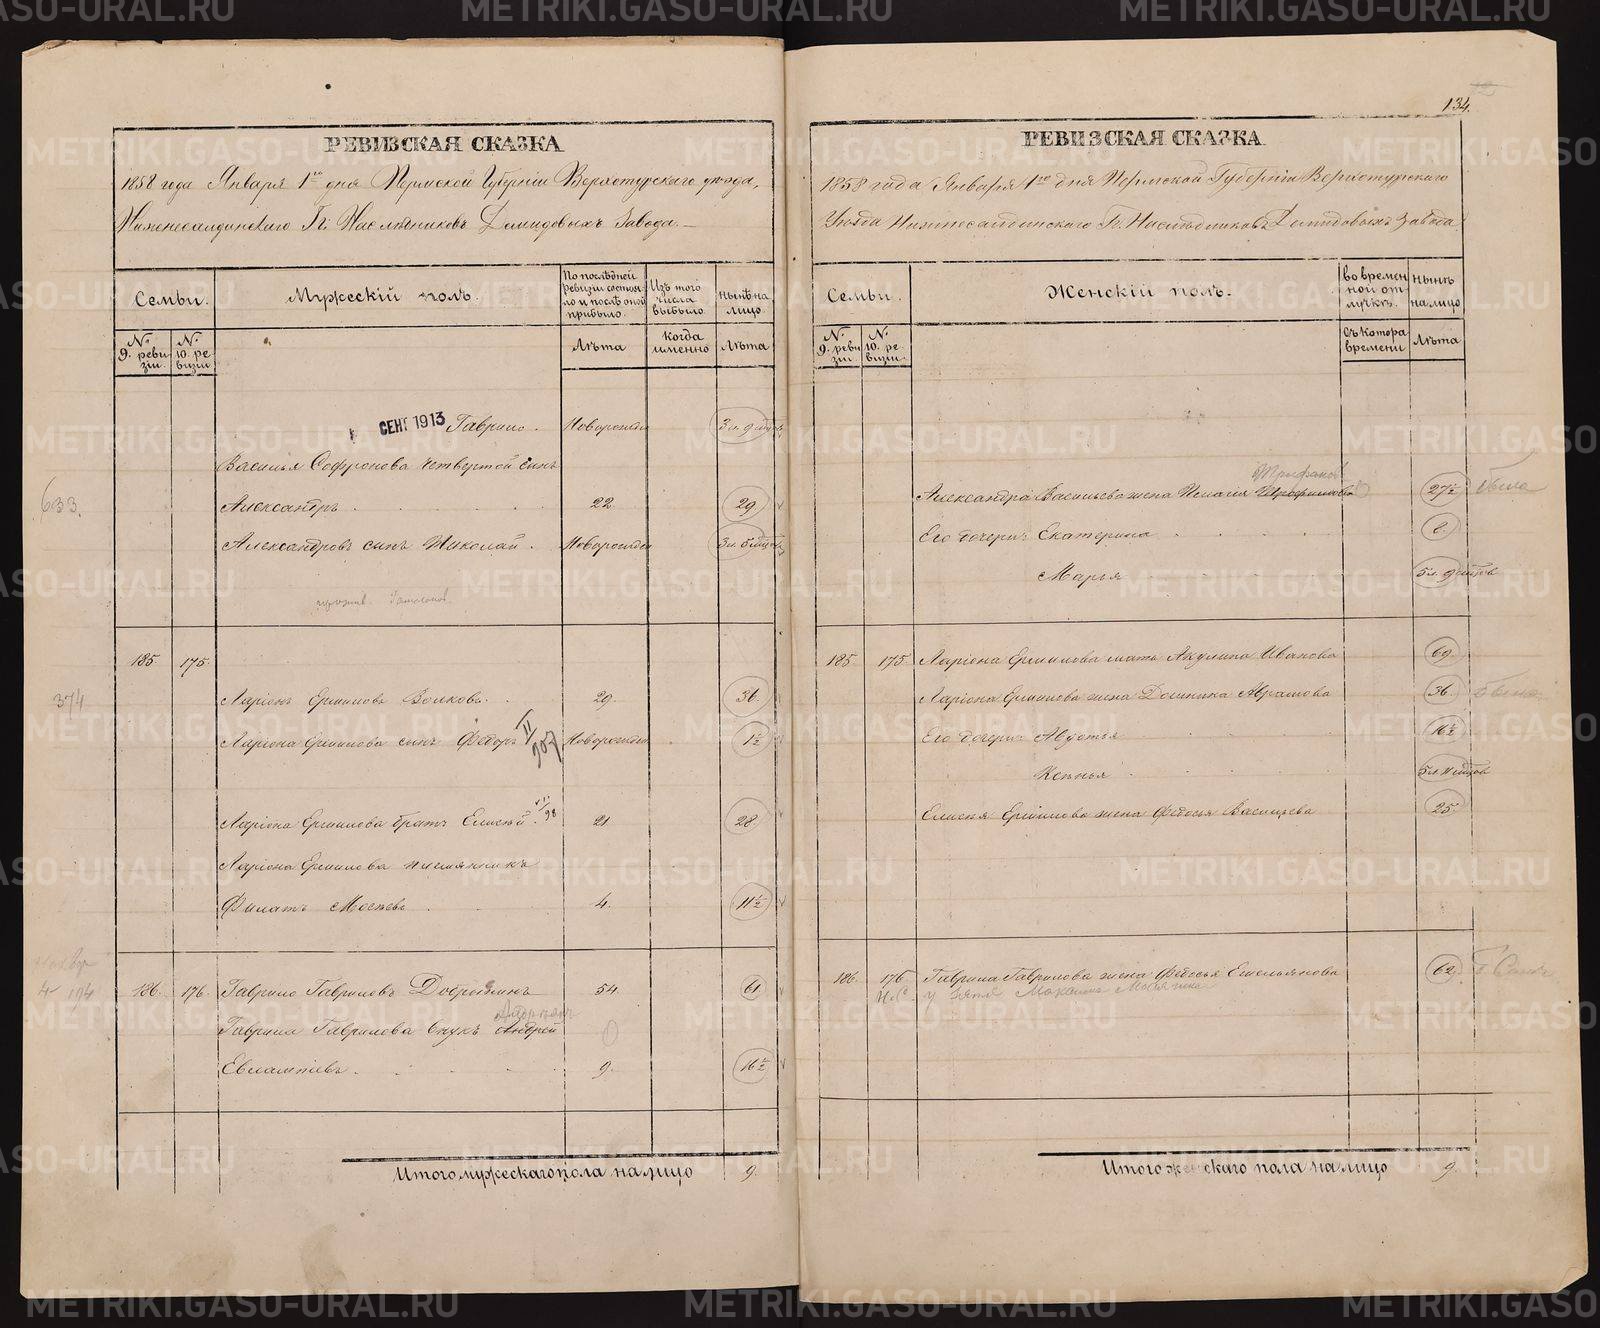 РЕВИЗСКАЯ СКАЗКА
1858 года Января 1го дня Пермской Губерніи Верхотурскаго уѣзда,
Нижнесалдинскаго Гг. Наслѣдниковъ Демидовыхъ Завода.
Семьи.
Мужескій полъ.
По послѣдней ревизіи состояло и послѣ оной прибыло.
Изъ того числа выбыло
нынѣ на лицо
№ 9. ревизіи.
№ 10. ревизіи
Лѣта
Когда именно
Лѣта
СЕНТ 1913
Гаврило. Новорожден 3 л. 9 мцов
Василья Софронова четвертой сынъ
633.
Александръ 22. 29
Александровъ сынъ Николай. Новорожден 3 л. 5 мцов
185. 175.
374
Ларіонъ Ермиловъ Волковъ 29. 36.
Ларіона Ермилова сынъ Федоръ Новорожден 1½
II/907
Ларіона Ермилова братъ Елисѣй. 21 28
98
Ларіона Ермилова племянникъ
Филатъ Мосѣевъ 4. 11½
4 194
186. 176. Гаврило Гавриловъ Добрынинъ 54. 61.
Гаврила Гаврилова внукъ Андрей
Евлампіевъ 9. 16½
Итого мужескаго пола на лицо 9.
134.
РЕВИЗСКАЯ СКАЗКА.
1858 года Января 1го дня Пермской Губерніи Верхотурскаго
Уѣзда Нижнесалдинскаго Гг. Наслѣдниковъ Демидовыхъ Завода
Семьи.
Женскій полъ.
во временной отлучкѣ.
нынѣ на лицо
№ 9. ревизіи.
№ 10. ревизіи.
Съ котора времени
Лѣта
Трифанов
Александра Васильева жена Пелагія 27½
Его дочери: Екатерина 8.
Марья 5 л. 9 мцов
185. 175. Ларіона Ермилова мать Акулина Иванова 69.
Ларіона Ермилова жена Домника Абрамова 36
Его дочери: Авдотья 16½
Ксенья 5 л. 11 мцов
Елисея Ермилова жена Федосья Васильева 25
186. 176 Гаврила Гаврилова жена Федосья Емельянова 62.
у зятя Максима
Итого женскаго пола на лицо 9.
METRIKI.GASO-URAL.RU